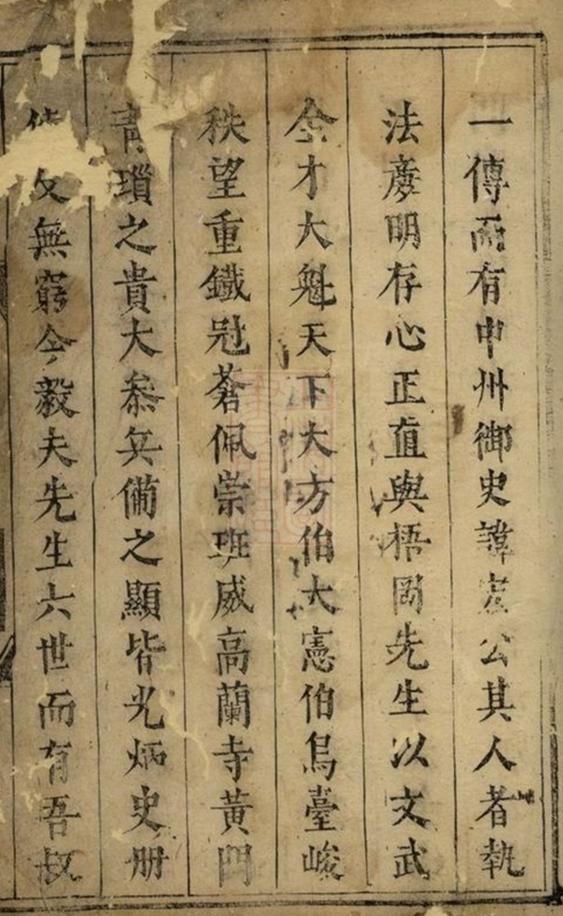 一傳而有中州御史諱憲公其人者執
法彥明存心正直與梧岡先生以文武
全才大魁天下大方伯大憲伯烏臺峻
秩望重鐵冠蒼佩崇班威高蘭寺黃門
青瑣之貴大叅兵僃之顯皆光炳史册
文無窮今毅夫先生六世而有吾叔